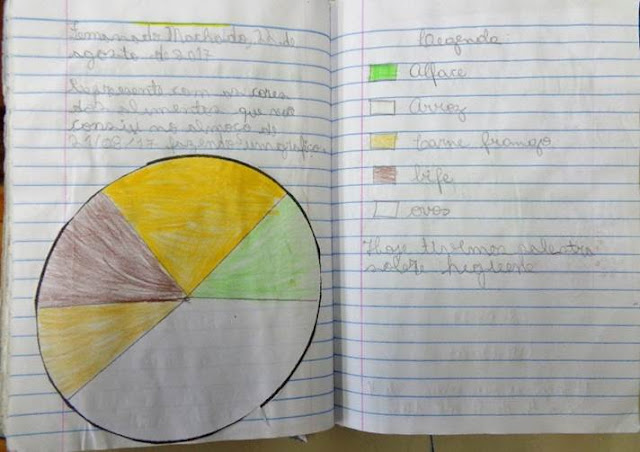 Fernando Machado, 22 de
agosto de 2017
Represento com as cores
dos alimentos que
no almoço de
21/08/17 fazendo um gráfico
Legenda:
Alface
Arroz
Carne frango
bife
ovos
Hoje tivemos palestra
sobre higiene